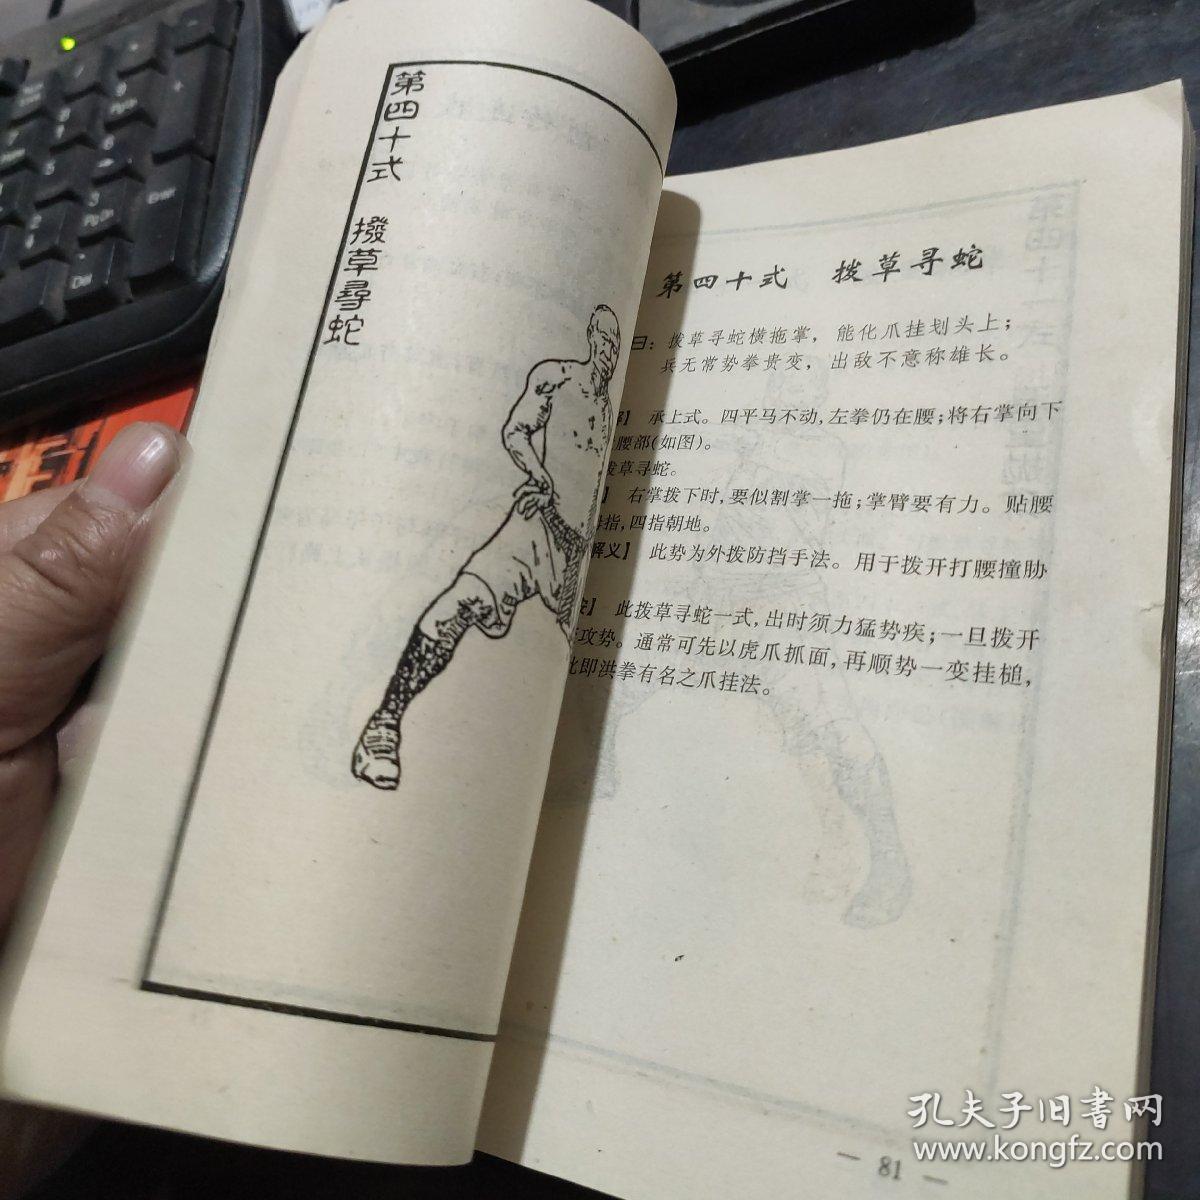 第四十式 撥草尋蛇
第四十式 拨草寻蛇
曰：拨草寻蛇横拖掌，能化爪挂划头上；
兵无常势拳贵变，出敌不意称雄长。
】 承上式。四平马不动，左拳仍在腰；将右掌向下
腰部（如图）。
拨草寻蛇。
】 右掌拨下时，要似割掌一拖；掌臂要有力。贴腰
指，四指朝地。
解义】 此势为外拨防挡手法。用于拨开打腰撞胁
】 此拨草寻蛇一式，出时须力猛势疾；一旦拨开
攻势。通常可先以虎爪抓面，再顺势一变挂槌，
此即洪拳有名之爪挂法。
— 81 —
孔夫子旧书网
www.kongfz.com